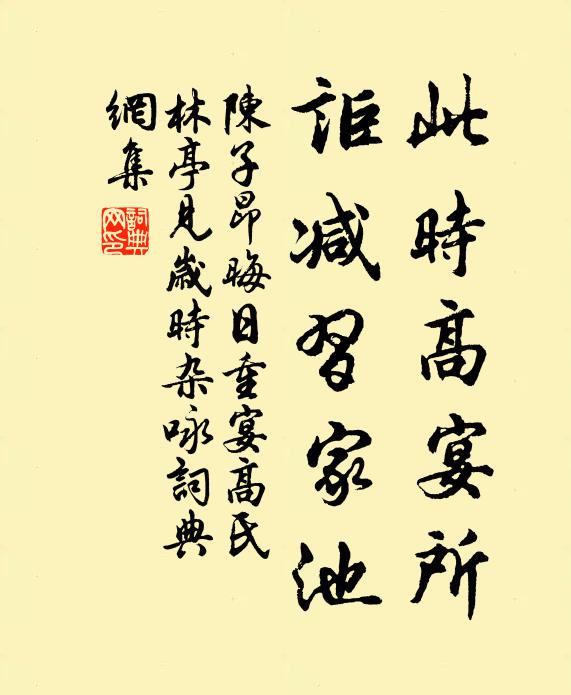 此時高宴所
詎减習家池
陳子昂晦日重宴高氏
林亭見歲時杂咏詞典
網集
詞典网印